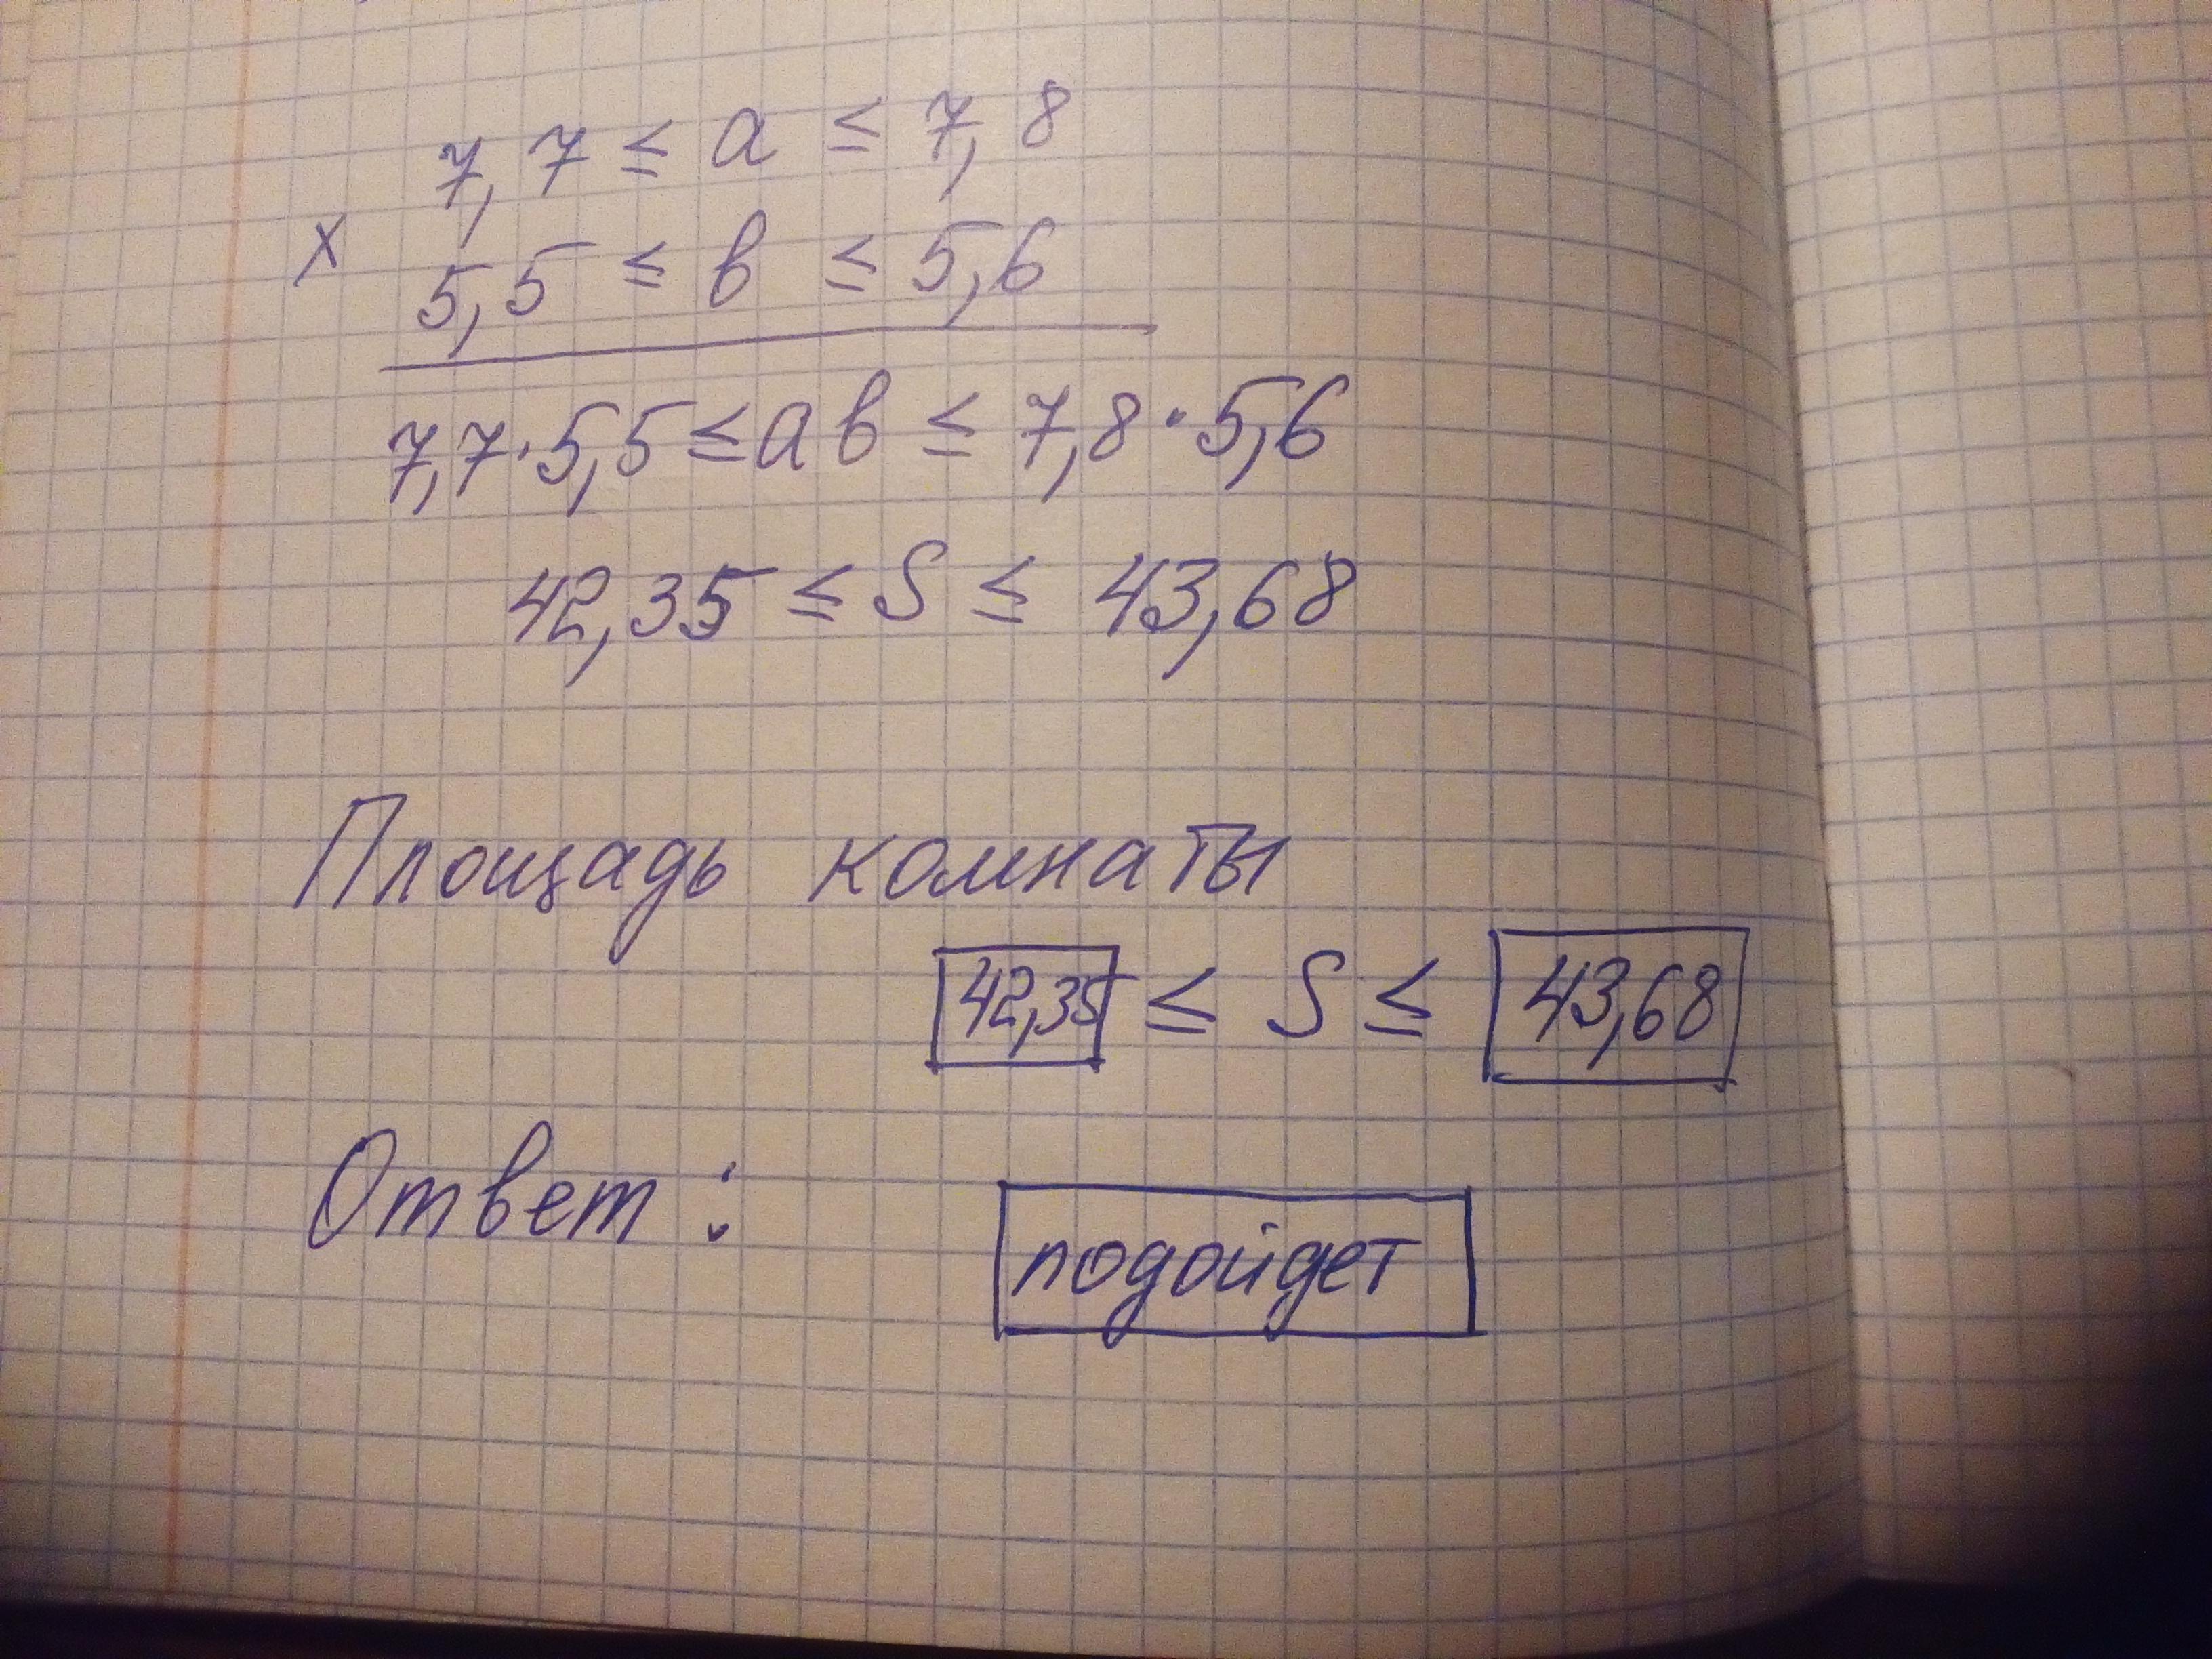 7,7 ≤ a ≤ 7,8
x
5,5 ≤ в ≤ 5,6
7,7·5,5 ≤ aв ≤ 7,8·5,6
42,35 ≤ S ≤ 43,68
Площадь комнаты
42,35 ≤ S ≤ 43,68
Ответ: подойдет